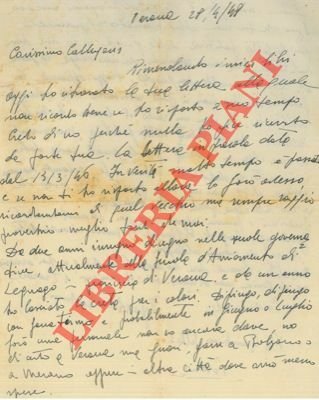 Verona 28/4/48
Carissimo Callegaris
Rimendando i miei libri
oggi ho ritrovato la tua lettera alla quale
non ricordo bene se ho risposto a suo tempo.
Credo di no perché nulla ho più ricevuto
da parte tua. La lettera in parola data
dal 13/3/46. In verità molto tempo è passato
e se non ti ho risposto allora lo farò adesso,
ricordandomi di quel vecchio ma sempre saggio
proverbio meglio tardi che mai.
Da due anni insegno disegno nelle scuole governa
tive, attualmente alla scuola d'Avviamento di
Legnago in provincia di Verona e da un anno
ho tornato fra i colori. Dipingo, dipingo
con fanatismo e probabilmente in Giugno o Luglio
farò una personale non so ancora dove, no
di certo a Verona ma fuori, forse a Bolzano o
a Merano oppure in altra città dove avrò meno
spese.
LIBRERIA PIANI